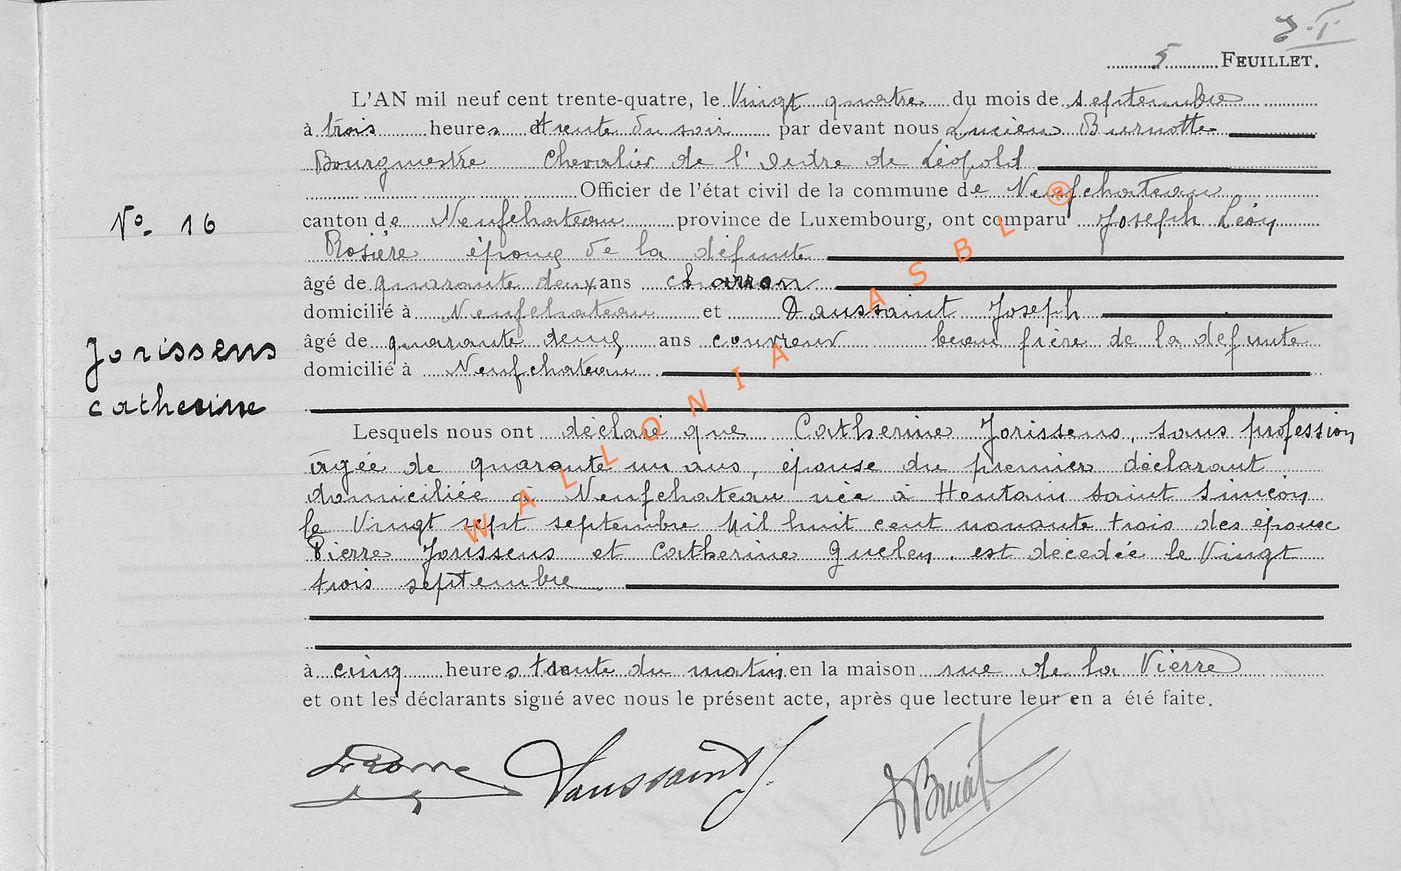 5 FEUILLET.
L'AN mil neuf cent trente-quatre, le Vingt quatre du mois de septembre
à trois heures et trente du soir par devant nous Lucien Burnotte
Bourgmestre Chevalier de l'Ordre de Léopold
Officier de l'état civil de la commune de Neufchateau
N° 16
canton de Neufchateau province de Luxembourg, ont comparu Joseph Léon
Rosière époux de la défunte
âgé de quarante deux ans charron
domicilié à Neufchateau et Toussaint Joseph
Jorissens
âgé de quarante deux ans couvreur beau frère de la défunte
domicilié à Neufchateau
Catherine
Lesquels nous ont déclaré que Catherine Jorissens, sans profession
âgée de quarante un ans, épouse du premier déclarant
domiciliée à Neufchateau née à Houtain saint Siméon
le Vingt sept septembre Mil huit cent nonante trois des époux
Pierre Jorissens et Catherine est décédée le Vingt
trois septembre
à cinq heures trente du matin en la maison rue de la Vierre
et ont les déclarants signé avec nous le présent acte, après que lecture leur en a été faite.
Toussaint J.
WALLONIA ASBL ®